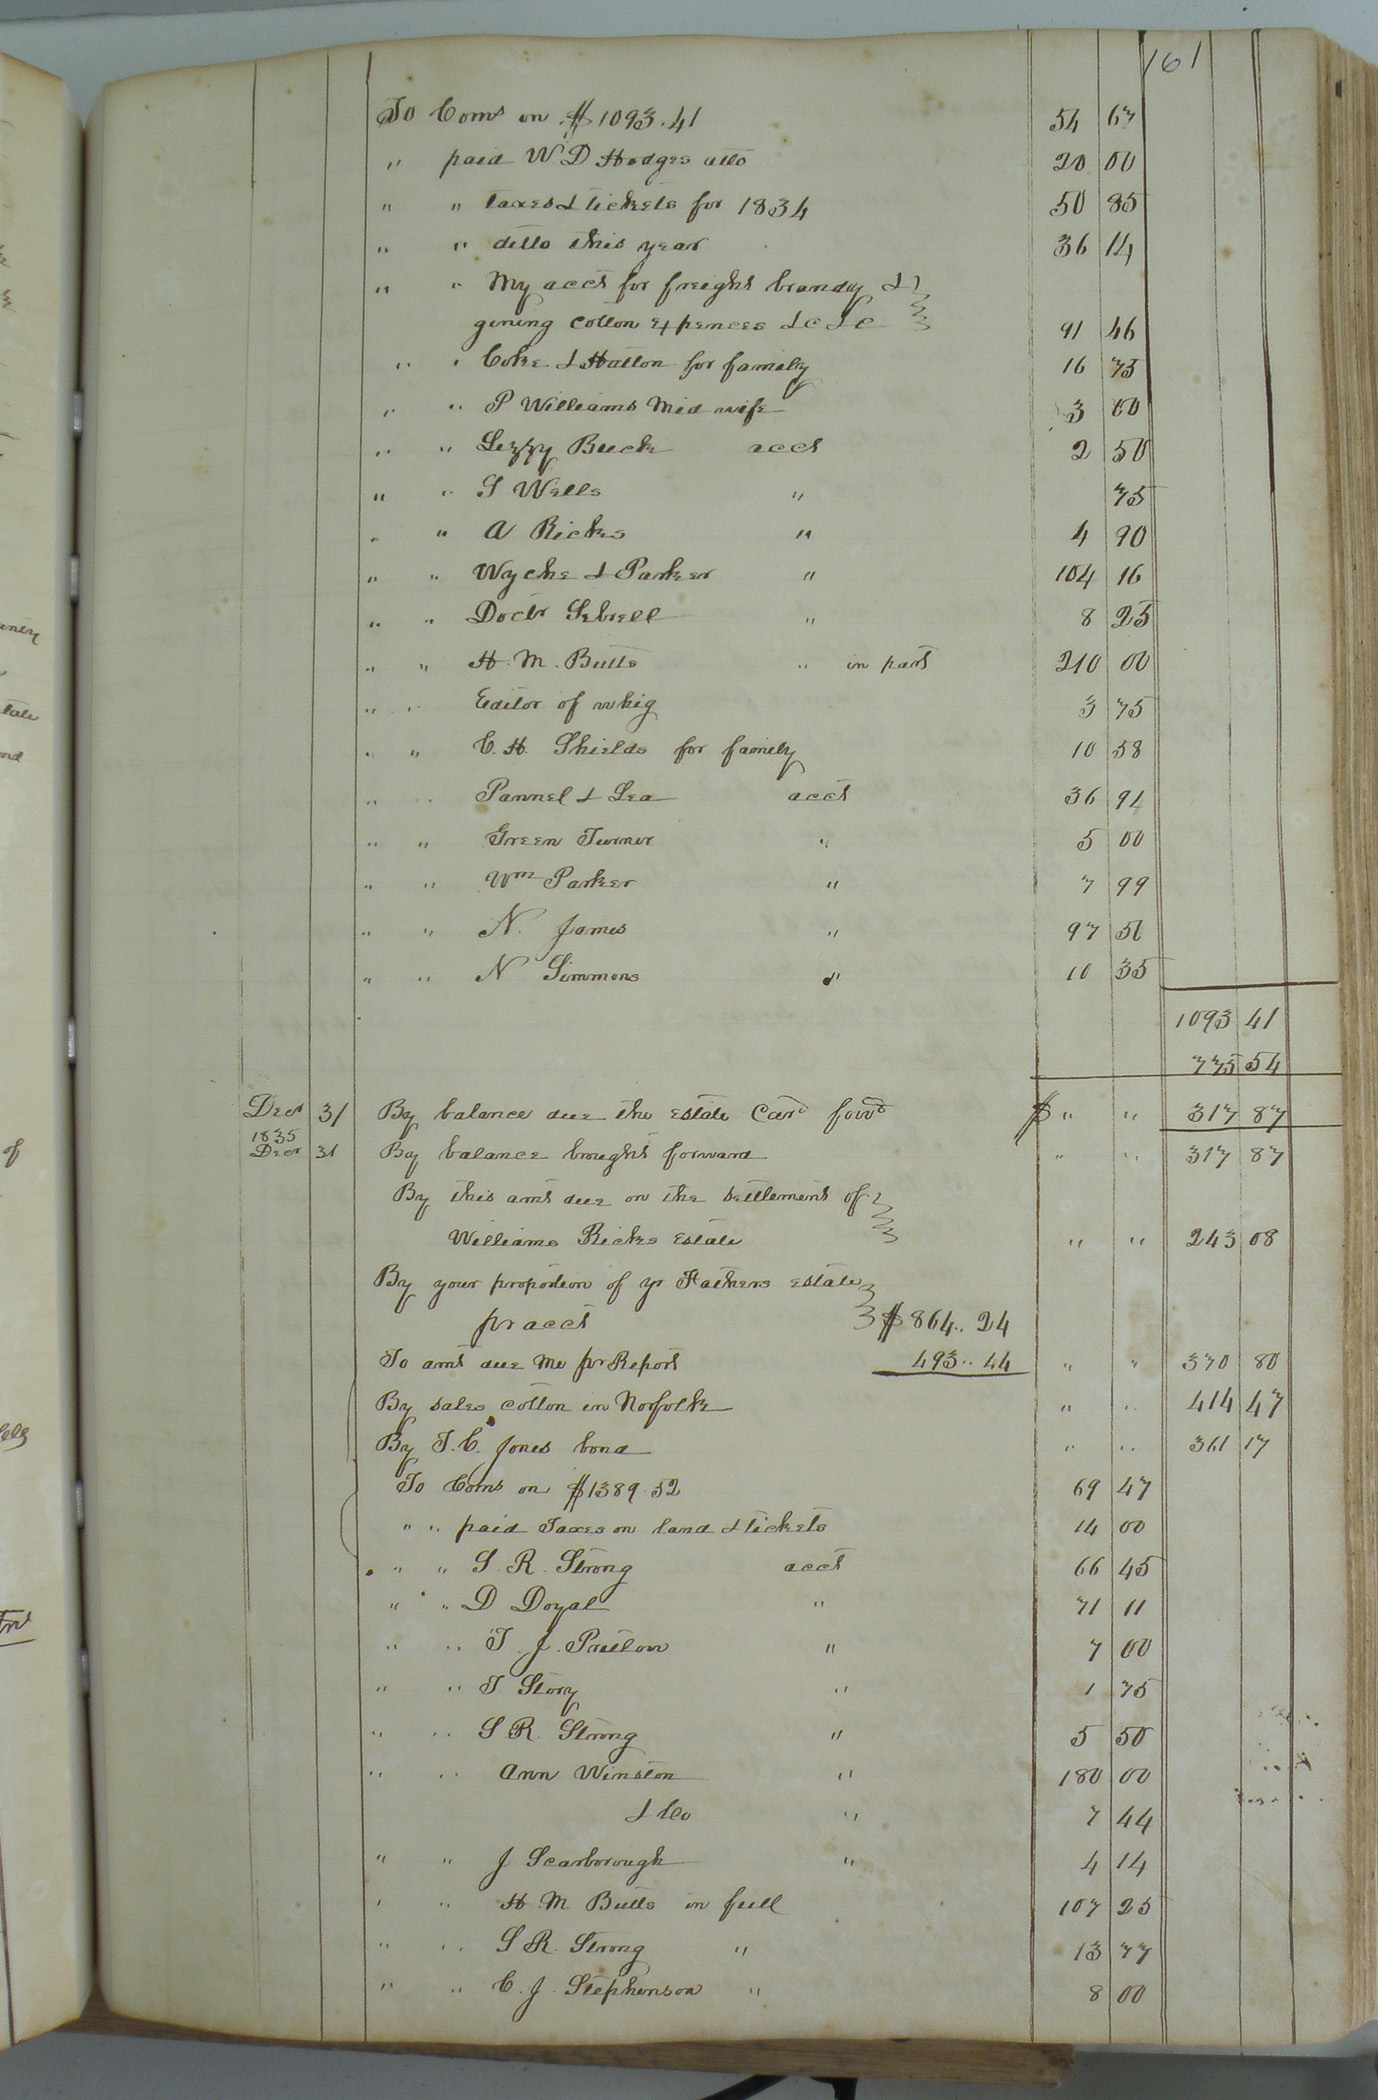 161
To Coms on $1093.41 54 67
" paid W D Hodges atto 20 00
" " taxes & tickets for 1834 50 85
" " ditto this year 36 14
" " My acct for freight brandy &
gining cotton expences &c &c 91 46
" " Coke & Hatton for family 16 75
" " P Williams Mid wife 3 00
" " Lizzy Buck acct 2 50
" " S Wells " 75
" " A Ricks " 4 90
" " Wyche & Parker " 104 16
" " Doctr Sebrell " 8 25
" " H. M. Butts " in part 210 00
" " Editor of whig 3 75
" " C. H. Shields for family 10 58
" " Pannel & Lea acct 36 91
" " Green Turner " 5 00
" " Wm Parker " 7 99
" " N. James " 97 51
" " N Simmons " 10 35
1093 41
775 54
Decr 31 By balance due the estate Card forwd $ " " 317 87
1835
Decr 31 By balance brought forward " " 317 87
By this amt due on the settlement of
Williams Ricks Estate " " 243 08
By your proportion of yr Fathers estate
pr acct $864.. 24
To amt due me pr Report 493.. 44 " " 370 80
By sales cotton in Norfolk " " 414 47
By T. C. Jones bond " " 361 17
To Coms on $1389.52 69 47
" " paid Taxes on land & tickets 14 00
" " S. R. Strong acct 66 45
" " D Doyal " 71 11
" " T. J. Pretlow " 7 00
" " T. Story " 1 75
" " S R. Strong " 5 50
" " Ann Winston " 180 00
& Co " 7 44
" " J Scarborough " 4 14
" " H M Butts in full 107 25
" " S R. Strong " 13 77
" " C. J. Stephenson " 8 00